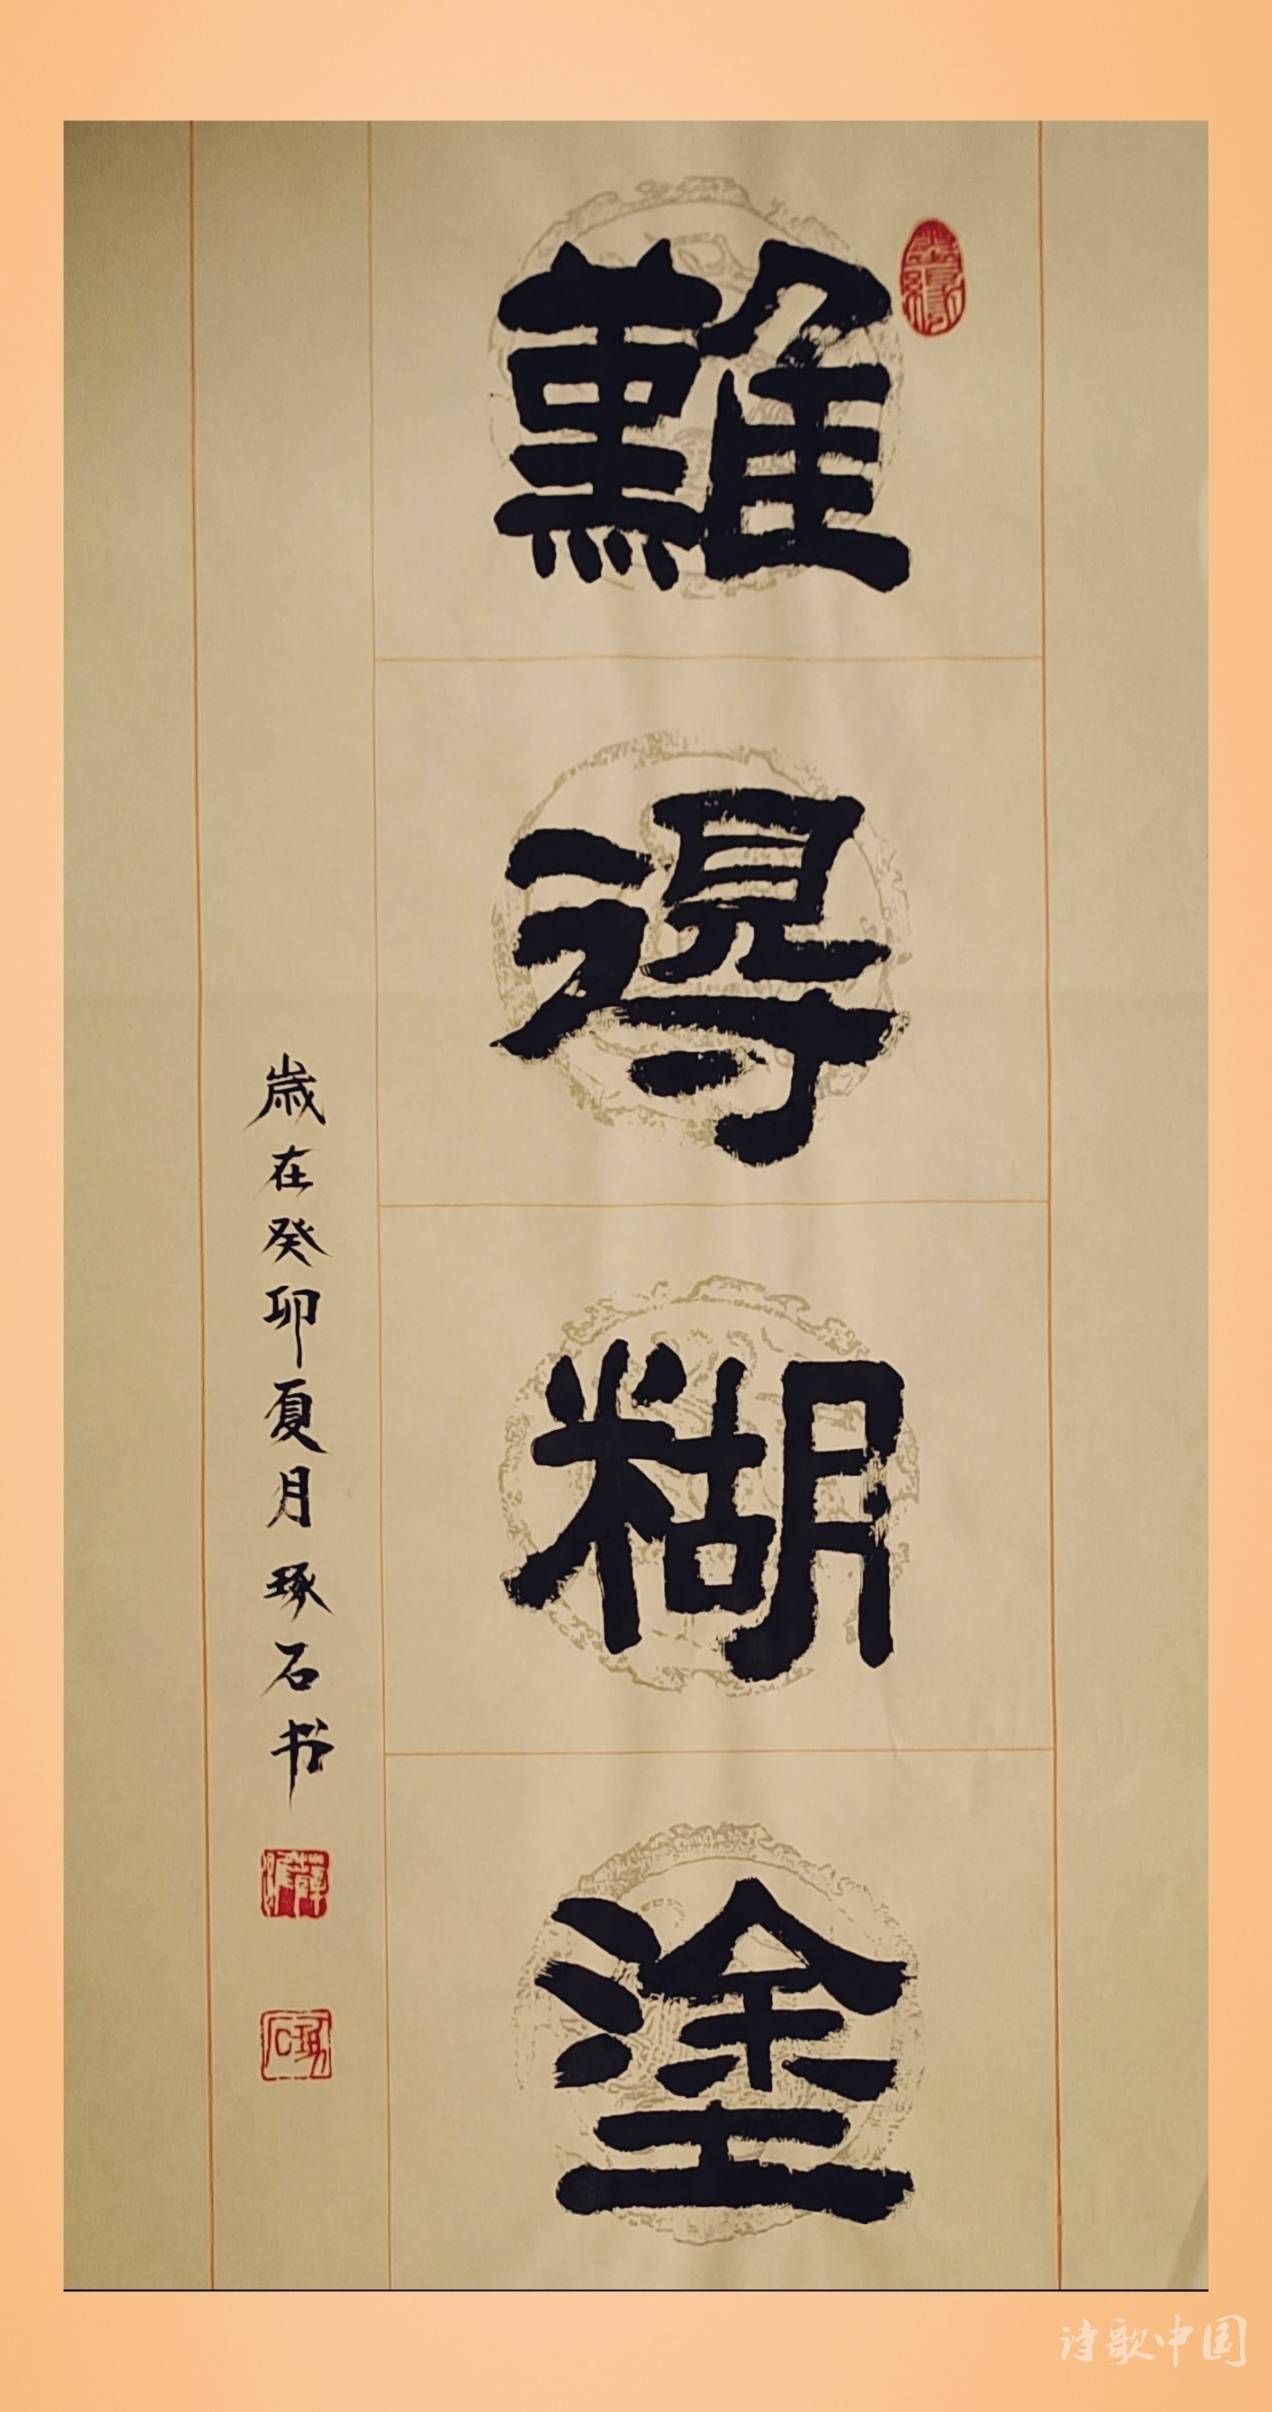 難得糊塗
歲在癸卯夏月琢石书
诗歌中国